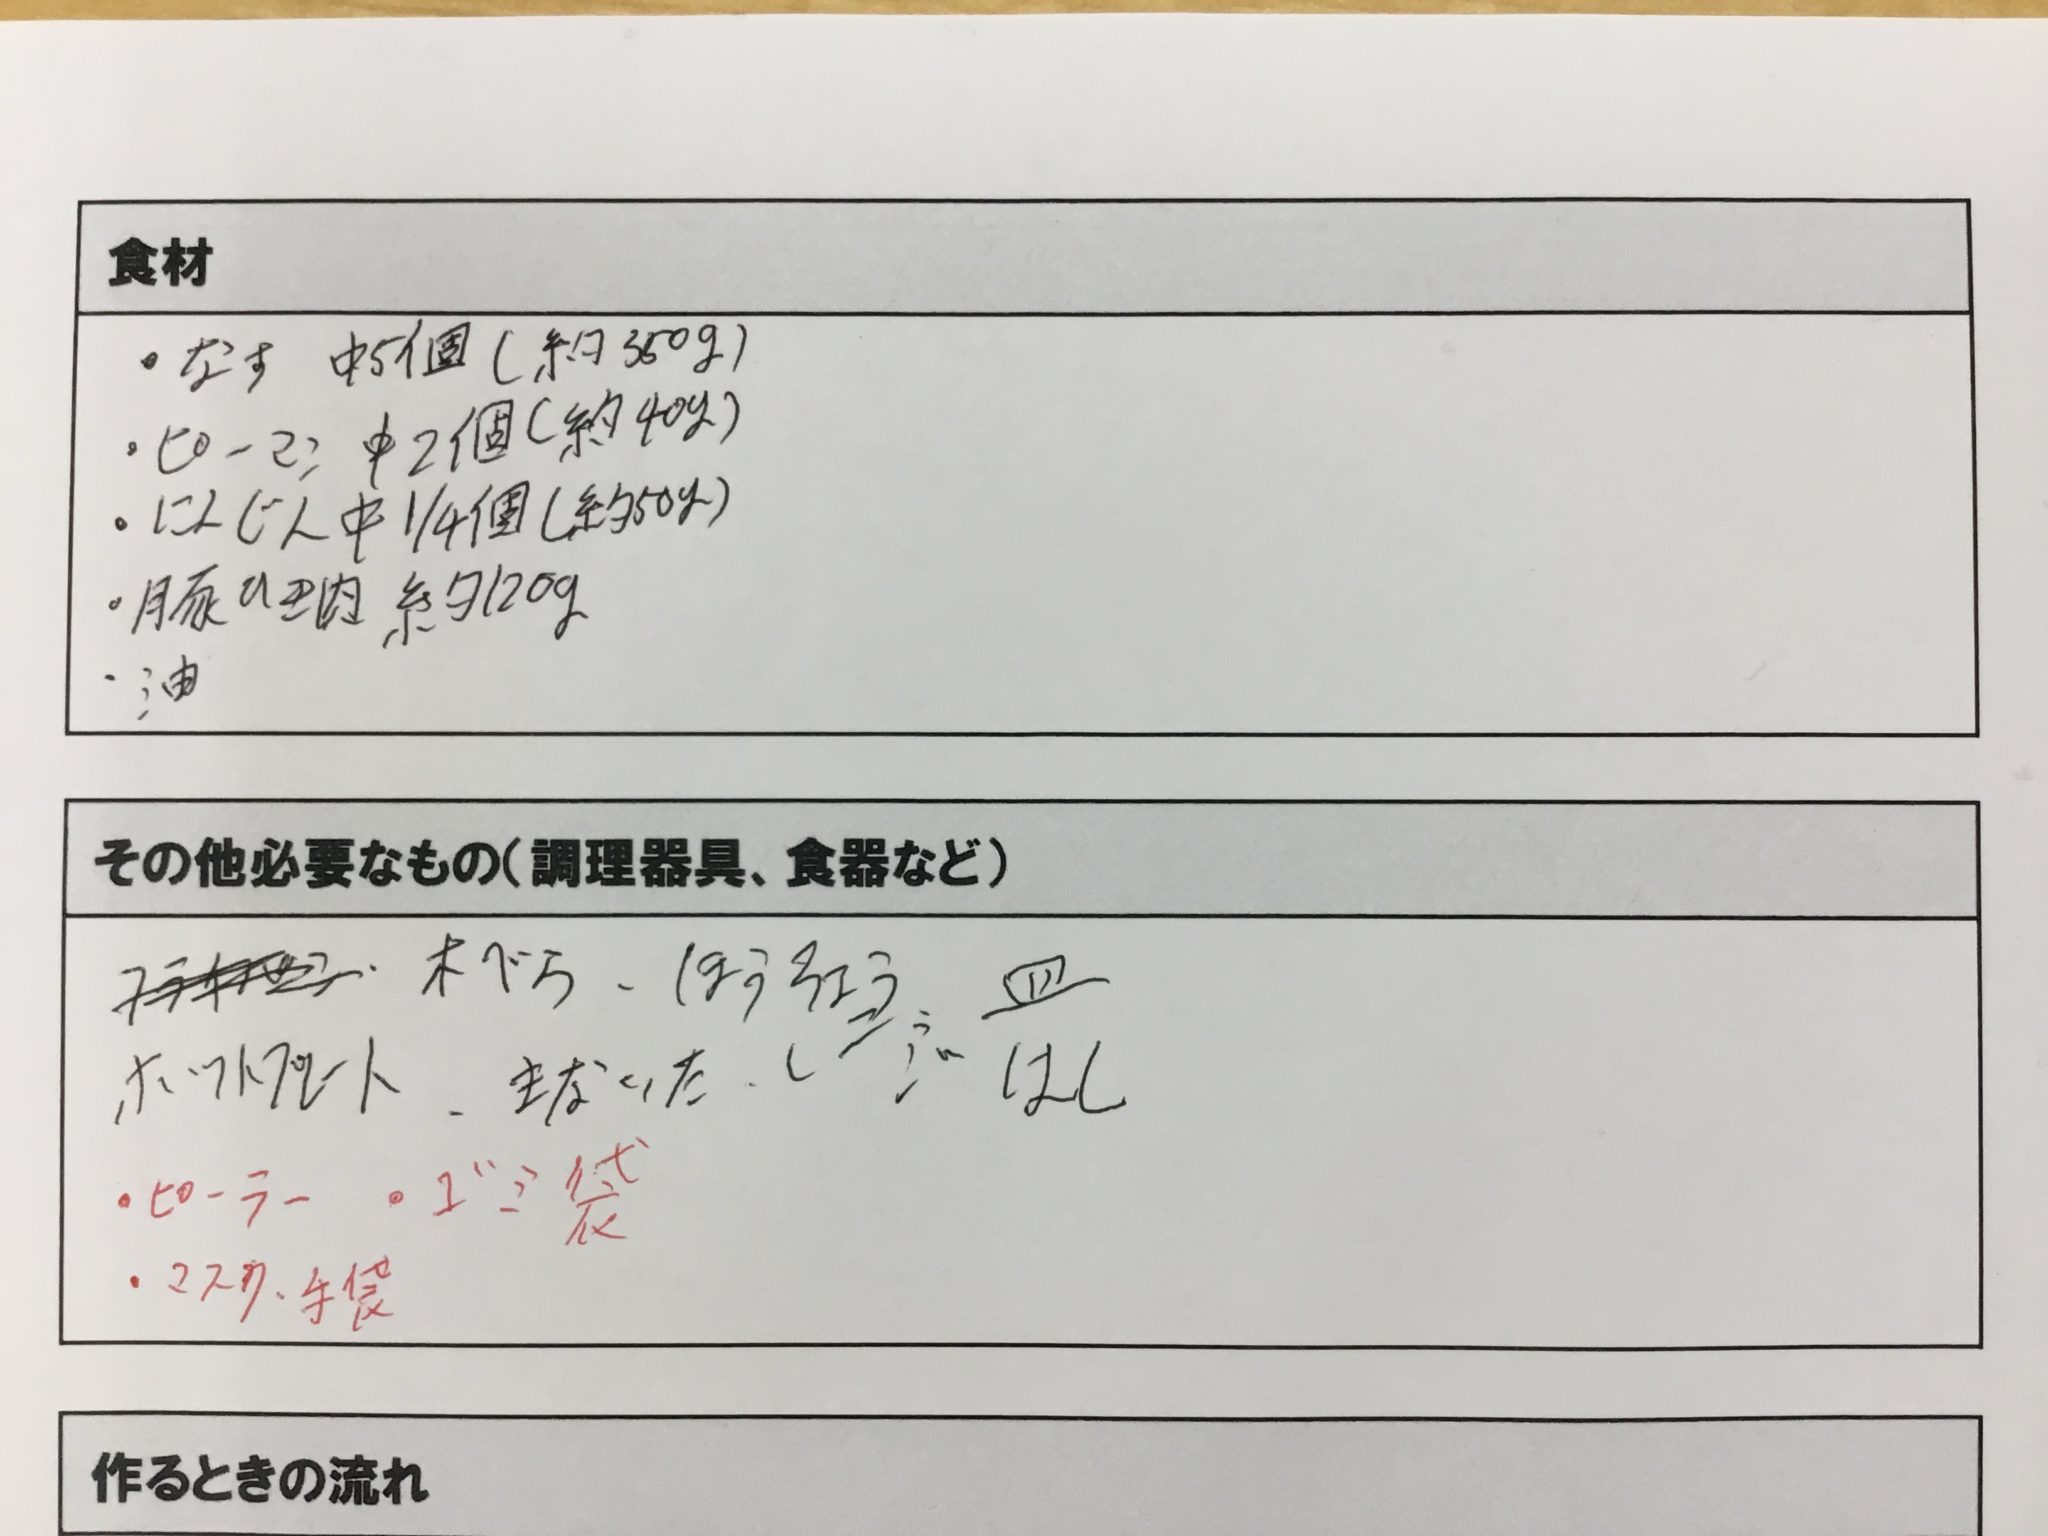 食材
・なす 中5個(約350g)
・ピーマン 中2個(約40g)
・にんじん中1/4個(約50g)
・豚ひき肉 約120g
・油
その他必要なもの(調理器具、食器など)
木べら、ほうちょう、皿
ホットプレート、まないた、レンジ はし
・ピーラー ・ゴミ袋
・マスク、手袋
作るときの流れ